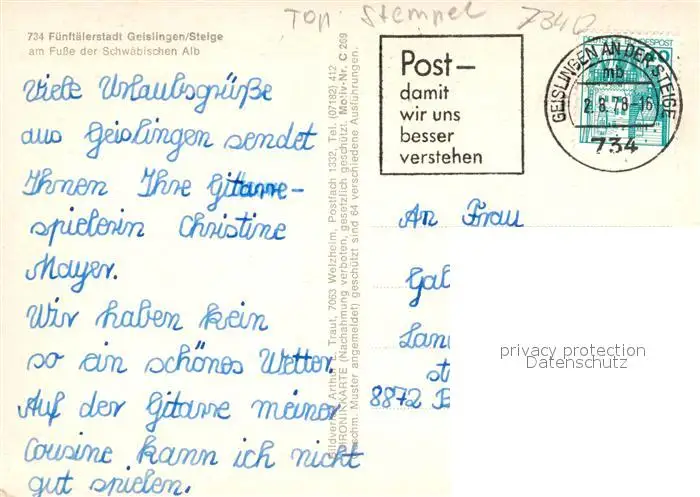 Top Stempel 7340
734 Fünftälerstadt Geislingen/Steige
am Fuße der Schwäbischen Alb
Viele Urlaubsgrüße
aus Geislingen sendet
Ihnen Ihre Gitarre-
spielerin Christine
Mayer.
Wir haben kein
so ein schönes Wetter.
Auf der Gitarre meiner
Cousine kann ich nicht
gut spielen.
Arthur Traut, 7063 Welzheim, Postfach 1332, Tel. (07182) 412
CHRONIKKARTE (Nachahmung verboten, gesetzlich geschützt. Motiv-Nr. C 269
Muster angemeldet) geschützt sind 64 verschiedene Ausführungen.
Post–
damit
wir uns
besser
verstehen
DEUTSCHE BUNDESPOST
GEISLINGEN AN DER STEIGE
mb
2.8.78-16
734
An Frau
Gab
Lan
st
8872 B
privacy protection
Datenschutz